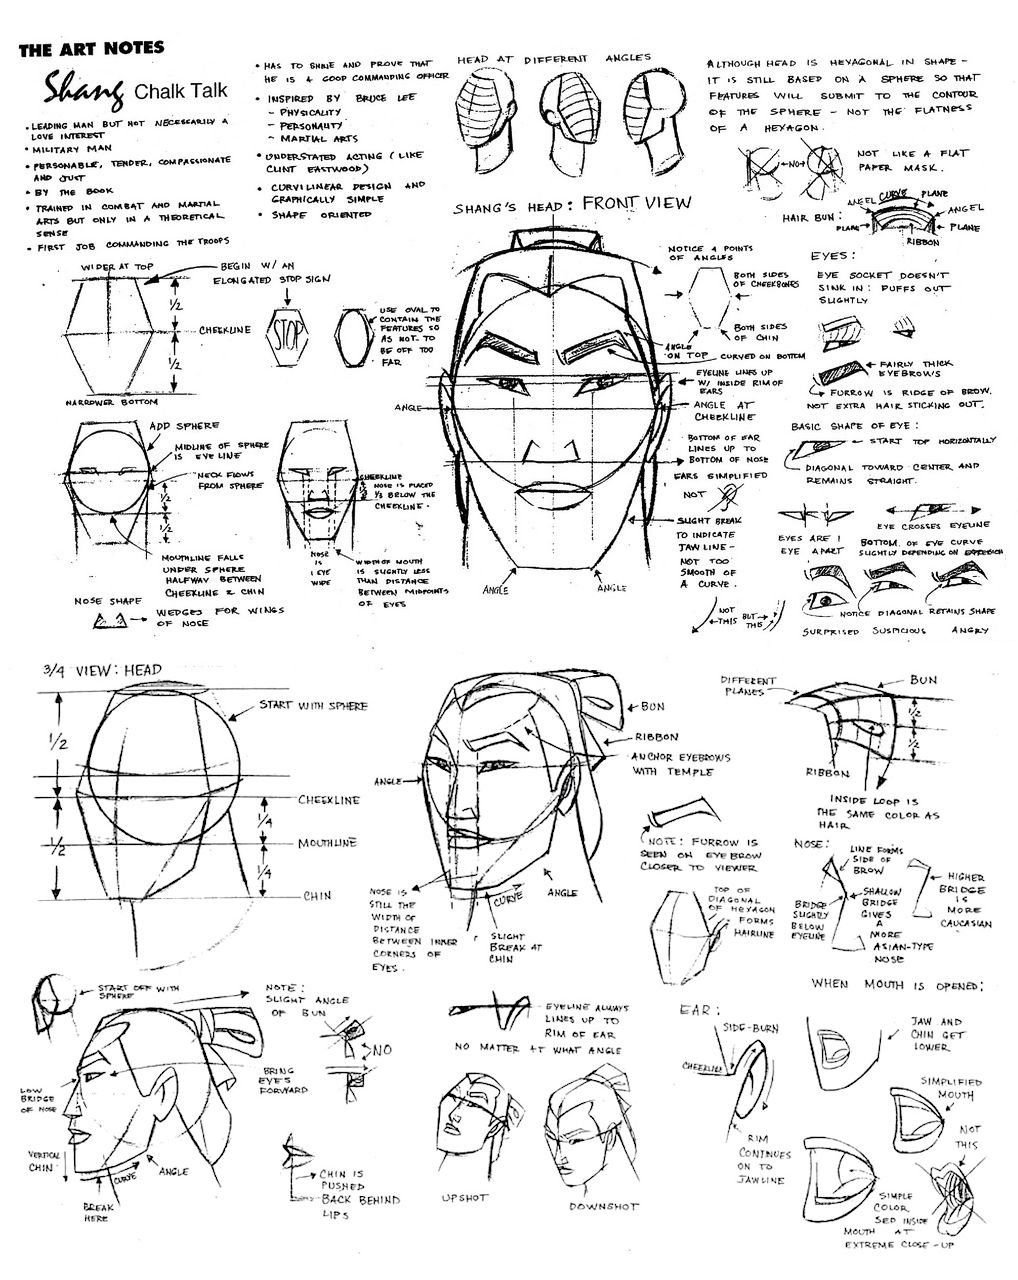 THE ART NOTES
Shang Chalk Talk
• LEADING MAN BUT NOT NECESSARILY A
LOVE INTEREST
• MILITARY MAN
• PERSONABLE, TENDER, COMPASSIONATE
AND JUST
• BY THE BOOK
• TRAINED IN COMBAT AND MARTIAL
ARTS BUT ONLY IN A THEORETICAL
SENSE
• FIRST JOB COMMANDING THE TROOPS
• HAS TO SHINE AND PROVE THAT
HE IS A GOOD COMMANDING OFFICER
• INSPIRED BY BRUCE LEE
- PHYSICALITY
- PERSONALITY
- MARTIAL ARTS
• UNDERSTATED ACTING (LIKE
CLINT EASTWOOD)
• CURVILINEAR DESIGN AND
GRAPHICALLY SIMPLE
• SHAPE ORIENTED
HEAD AT DIFFERENT ANGLES
ALTHOUGH HEAD IS HEXAGONAL IN SHAPE -
IT IS STILL BASED ON A SPHERE SO THAT
FEATURES WILL SUBMIT TO THE CONTOUR
OF THE SPHERE - NOT THE FLATNESS
OF A HEXAGON.
←NO→
NOT LIKE A FLAT
PAPER MASK.
HAIR BUN:
ANGEL
CURVE
PLANE
ANGEL
PLANE
PLANE
RIBBON
WIDER AT TOP
BEGIN W/ AN
ELONGATED STOP SIGN
1/2
CHEEKLINE
1/2
NARROWER BOTTOM
STOP
USE OVAL TO
CONTAIN THE
FEATURES SO
AS NOT TO
BE OFF TOO
FAR
ADD SPHERE
MIDLINE OF SPHERE
IS EYE LINE
NECK FLOWS
FROM SPHERE
1/2
1/2
MOUTHLINE FALLS
UNDER SPHERE
HALFWAY BETWEEN
CHEEKLINE & CHIN
CHEEKLINE
NOSE IS PLACED
1/3 BELOW THE
CHEEKLINE.
NOSE
IS
1 EYE
WIDE
WIDTH OF MOUTH
IS SLIGHTLY LESS
THAN DISTANCE
BETWEEN MIDPOINTS
OF EYES
NOSE SHAPE
WEDGES FOR WINGS
OF NOSE
SHANG'S HEAD: FRONT VIEW
NOTICE 4 POINTS
OF ANGLES
BOTH SIDES
OF CHEEKBONES
BOTH SIDES
OF CHIN
ANGLE
ON TOP
CURVED ON BOTTOM
EYELINE LINES UP
W/ INSIDE RIM OF
EARS
ANGLE
ANGLE AT
CHEEKLINE
BOTTOM OF EAR
LINES UP TO
BOTTOM OF NOSE
EARS SIMPLIFIED
NOT
SLIGHT BREAK
TO INDICATE
JAW LINE -
NOT TOO
SMOOTH OF
A CURVE.
ANGLE
ANGLE
NOT
THIS
BUT
THIS
EYES:
EYE SOCKET DOESN'T
SINK IN: PUFFS OUT
SLIGHTLY
FAIRLY THICK
EYEBROWS
FURROW IS RIDGE OF BROW.
NOT EXTRA HAIR STICKING OUT.
BASIC SHAPE OF EYE:
START TOP HORIZONTALLY
DIAGONAL TOWARD CENTER AND
REMAINS STRAIGHT.
EYES ARE 1
EYE APART
EYE CROSSES EYELINE
BOTTOM OF EYE CURVE
SLIGHTLY DEPENDING ON EXPRESSION
NOTICE DIAGONAL RETAINS SHAPE
SURPRISED SUSPICIOUS ANGRY
3/4 VIEW: HEAD
START WITH SPHERE
1/2
1/2
CHEEKLINE
1/4
MOUTHLINE
1/4
CHIN
BUN
RIBBON
ANCHOR EYEBROWS
WITH TEMPLE
ANGLE
NOTE: FURROW IS
SEEN ON EYEBROW
CLOSER TO VIEWER
NOSE IS
STILL THE
WIDTH OF
DISTANCE
BETWEEN INNER
CORNERS OF
EYES.
CURVE
ANGLE
SLIGHT
BREAK AT
CHIN
TOP OF
DIAGONAL
OF HEXAGON
FORMS
HAIRLINE
DIFFERENT
PLANES
BUN
1/2
1/2
RIBBON
INSIDE LOOP IS
THE SAME COLOR AS
HAIR
NOSE:
LINE FORMS
SIDE OF
BROW
BRIDGE
SLIGHTLY
BELOW
EYELINE
SHALLOW
BRIDGE
GIVES
A
MORE
ASIAN-TYPE
NOSE
HIGHER
BRIDGE
IS
MORE
CAUCASIAN
START OFF WITH
SPHERE
NOTE:
SLIGHT ANGLE
OF BUN
NO
LOW
BRIDGE
OF NOSE
BRING
EYES
FORWARD
VERTICAL
CHIN
CURVE
ANGLE
BREAK
HERE
CHIN IS
PUSHED
BACK BEHIND
LIPS
EYELINE ALWAYS
LINES UP TO
RIM OF EAR
NO MATTER AT WHAT ANGLE
UPSHOT
DOWNSHOT
EAR:
SIDE-BURN
CHEEKLINE
RIM
CONTINUES
ON TO
JAWLINE
WHEN MOUTH IS OPENED:
JAW AND
CHIN GET
LOWER
SIMPLIFIED
MOUTH
NOT
THIS
SIMPLE
COLOR
SEP INSIDE
MOUTH AT
EXTREME CLOSE-UP